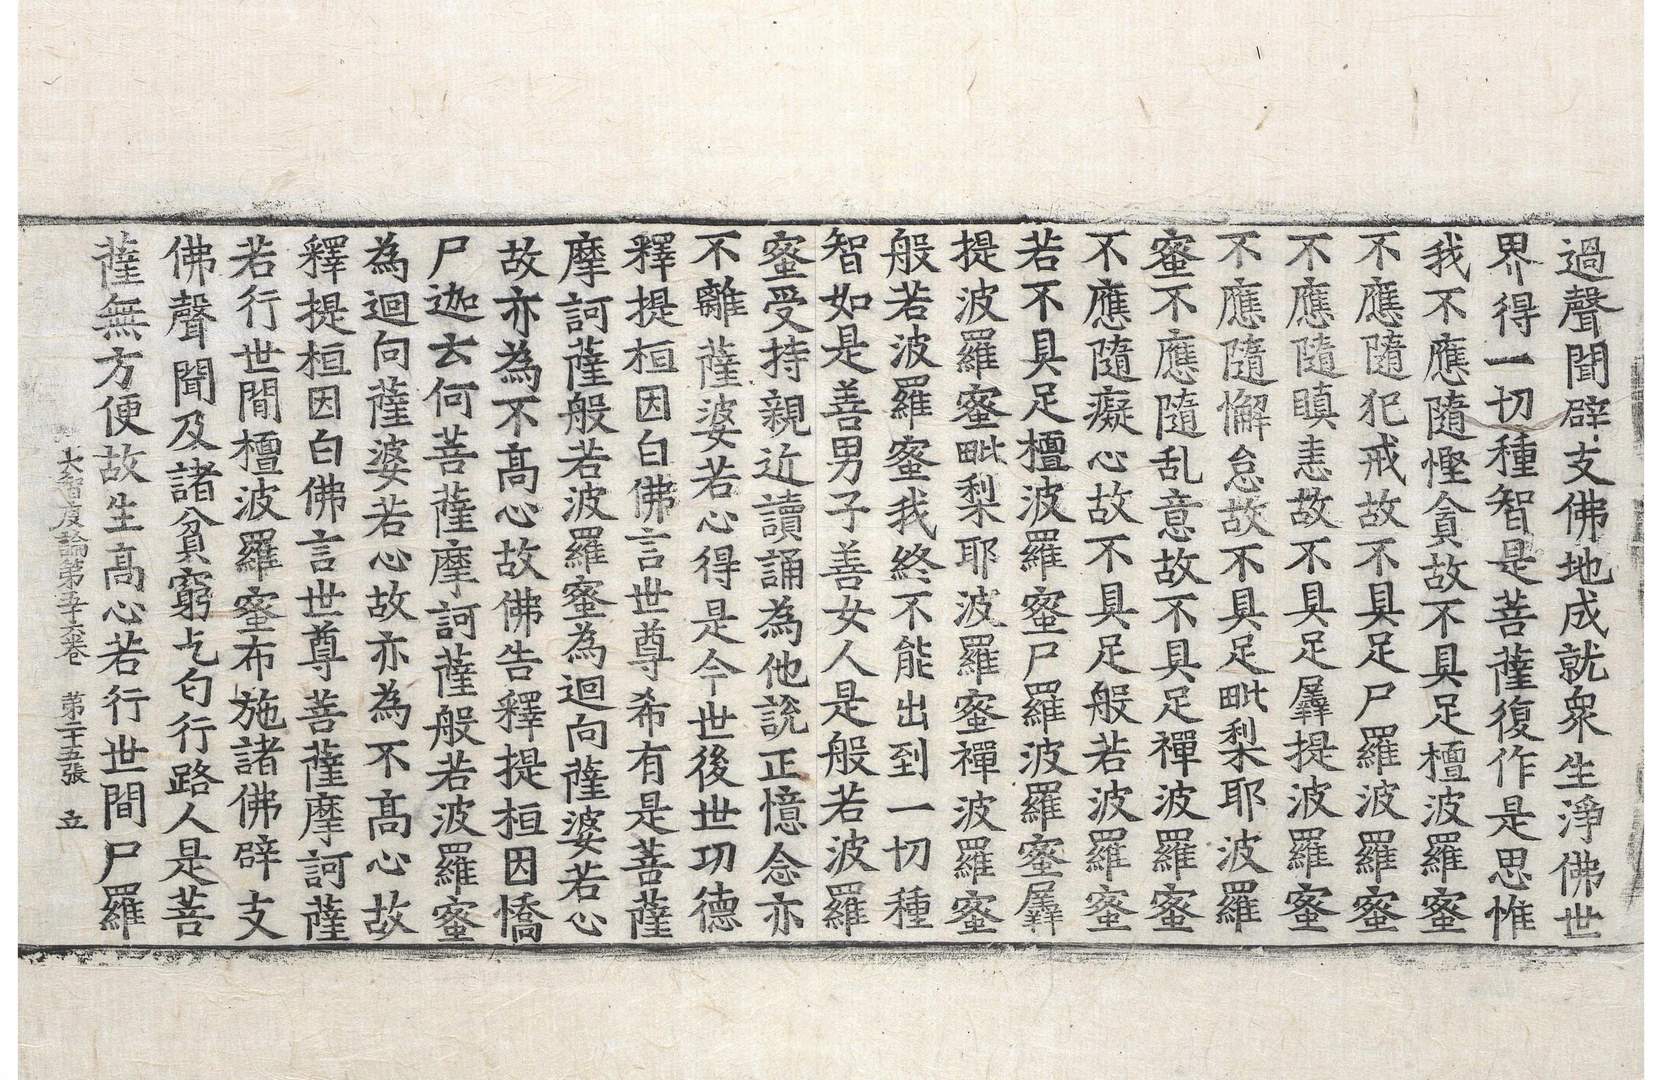 過聲聞辟支佛地成就衆生淨佛世
界得一切種智是菩薩復作是思惟
我不應隨慳貪故不具足檀波羅蜜
不應隨犯戒故不具足尸羅波羅蜜
不應隨瞋恚故不具足羼提波羅蜜
不應隨懈怠故不具足毗梨耶波羅
蜜不應隨乱意故不具足禪波羅蜜
不應隨癡心故不具足般若波羅蜜
若不具足檀波羅蜜尸羅波羅蜜羼
提波羅蜜毗梨耶波羅蜜禪波羅蜜
般若波羅蜜我終不能出到一切種
智如是善男子善女人是般若波羅
蜜受持親近讀誦為他說正憶念亦
不離薩婆若心得是今世後世功德
釋提桓因白佛言世尊希有是菩薩
摩訶薩般若波羅蜜為迴向薩婆若心
故亦為不髙心故佛告釋提桓因憍
尸迦云何菩薩摩訶薩般若波羅蜜
為迴向薩婆若心故亦為不髙心故
釋提桓因白佛言世尊菩薩摩訶薩
若行世間檀波羅蜜布施諸佛辟支
佛聲聞及諸貧窮乞匃行路人是菩
薩無方便故生髙心若行世間尸羅
大智度論第五十六卷 第二十五張 立